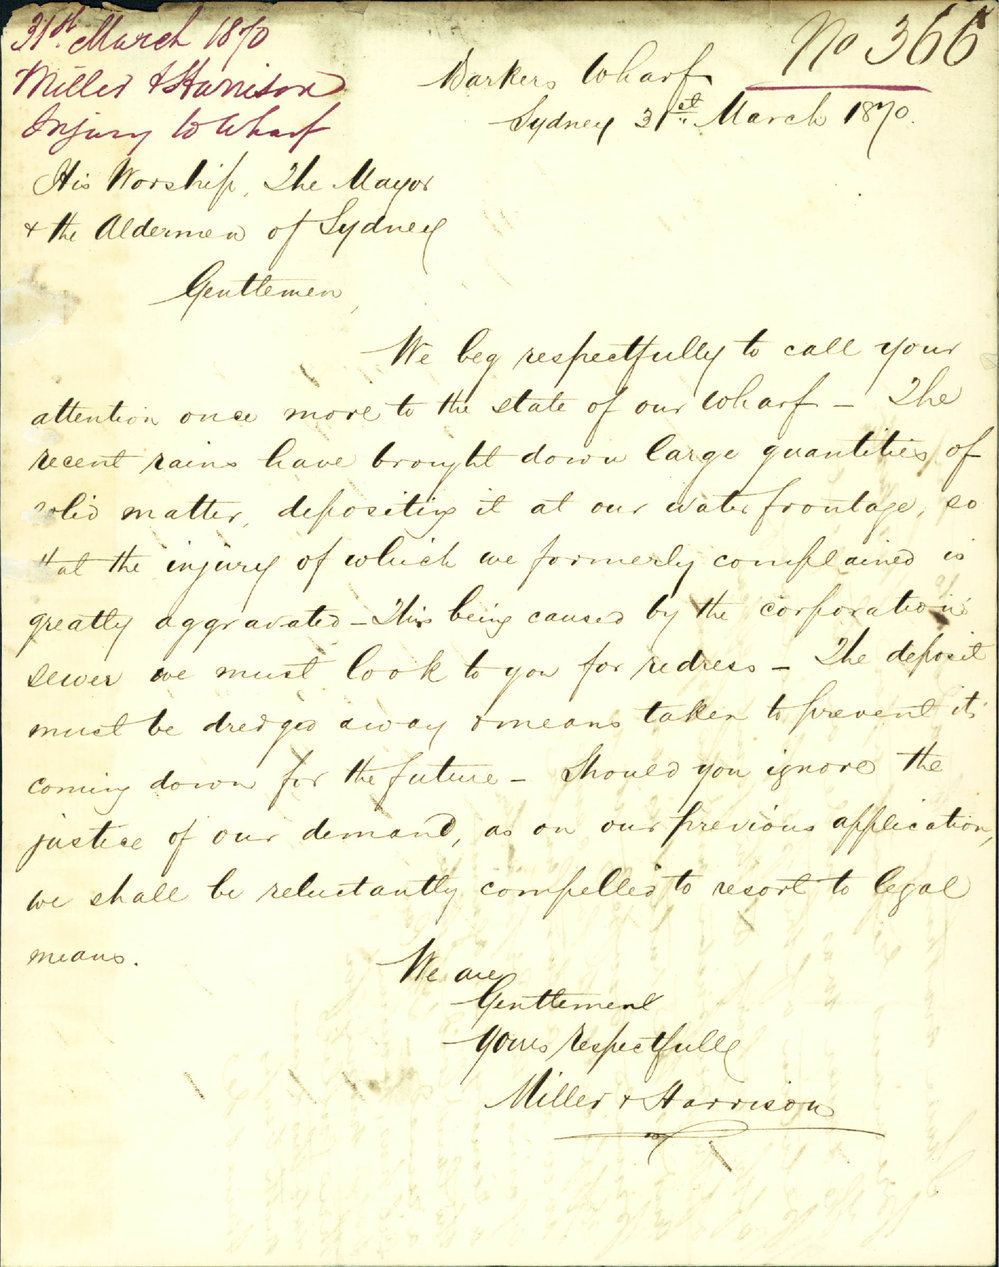 31st March 1870
Miller & Harrison
Injury to Wharf
No 366
Barkers Wharf
Sydney 31st March 1870.
His Worship, The Mayor
& the Aldermen of Sydney
Gentlemen,
We beg respectfully to call your
attention once more to the state of our wharf – The
recent rains have brought down large quantities of
solid matter, depositing it at our water frontage, so
that the injury of which we formerly complained is
greatly aggravated – This being caused by the corporation
sewer we must look to you for redress – The deposit
must be dredged away & means taken to prevent its
coming down for the future – Should you ignore the
justice of our demand, as on our previous application,
we shall be reluctantly compelled to resort to legal
means.
We are
Gentlemen
Yours respectfully
Miller & Harrison